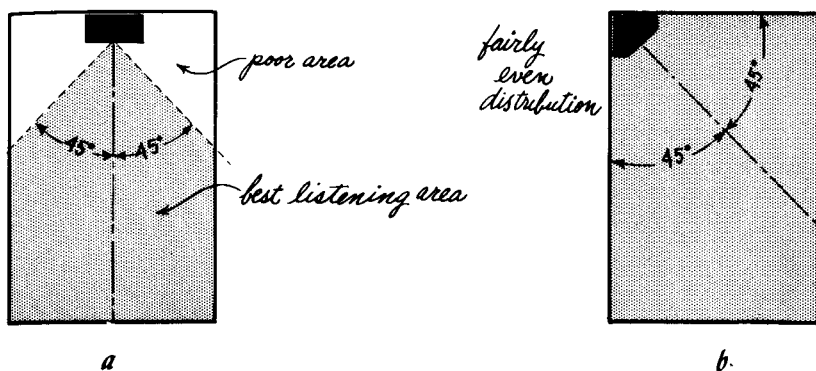 poor area
45° 45°
best listening area
a
fairly
even
distribution
45°
45°
b.